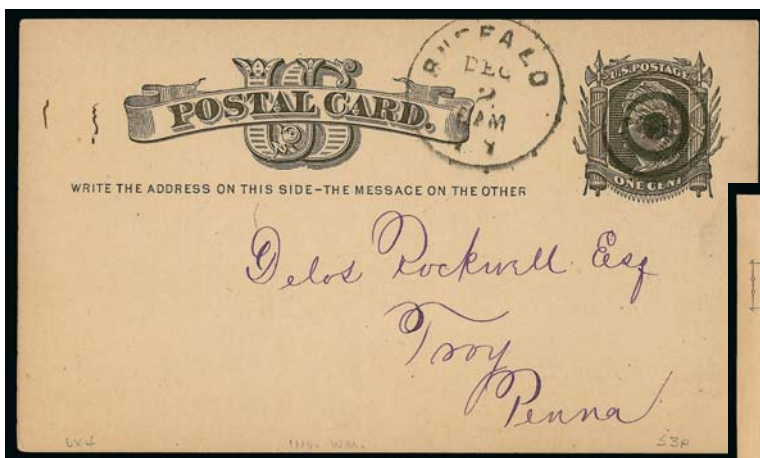 US
POSTAL CARD.
BUFFALO
DEC
2
AM
U.S. POSTAGE
ONE CENT
WRITE THE ADDRESS ON THIS SIDE-THE MESSAGE ON THE OTHER
Delos Rockwell Esq
Troy
Penna